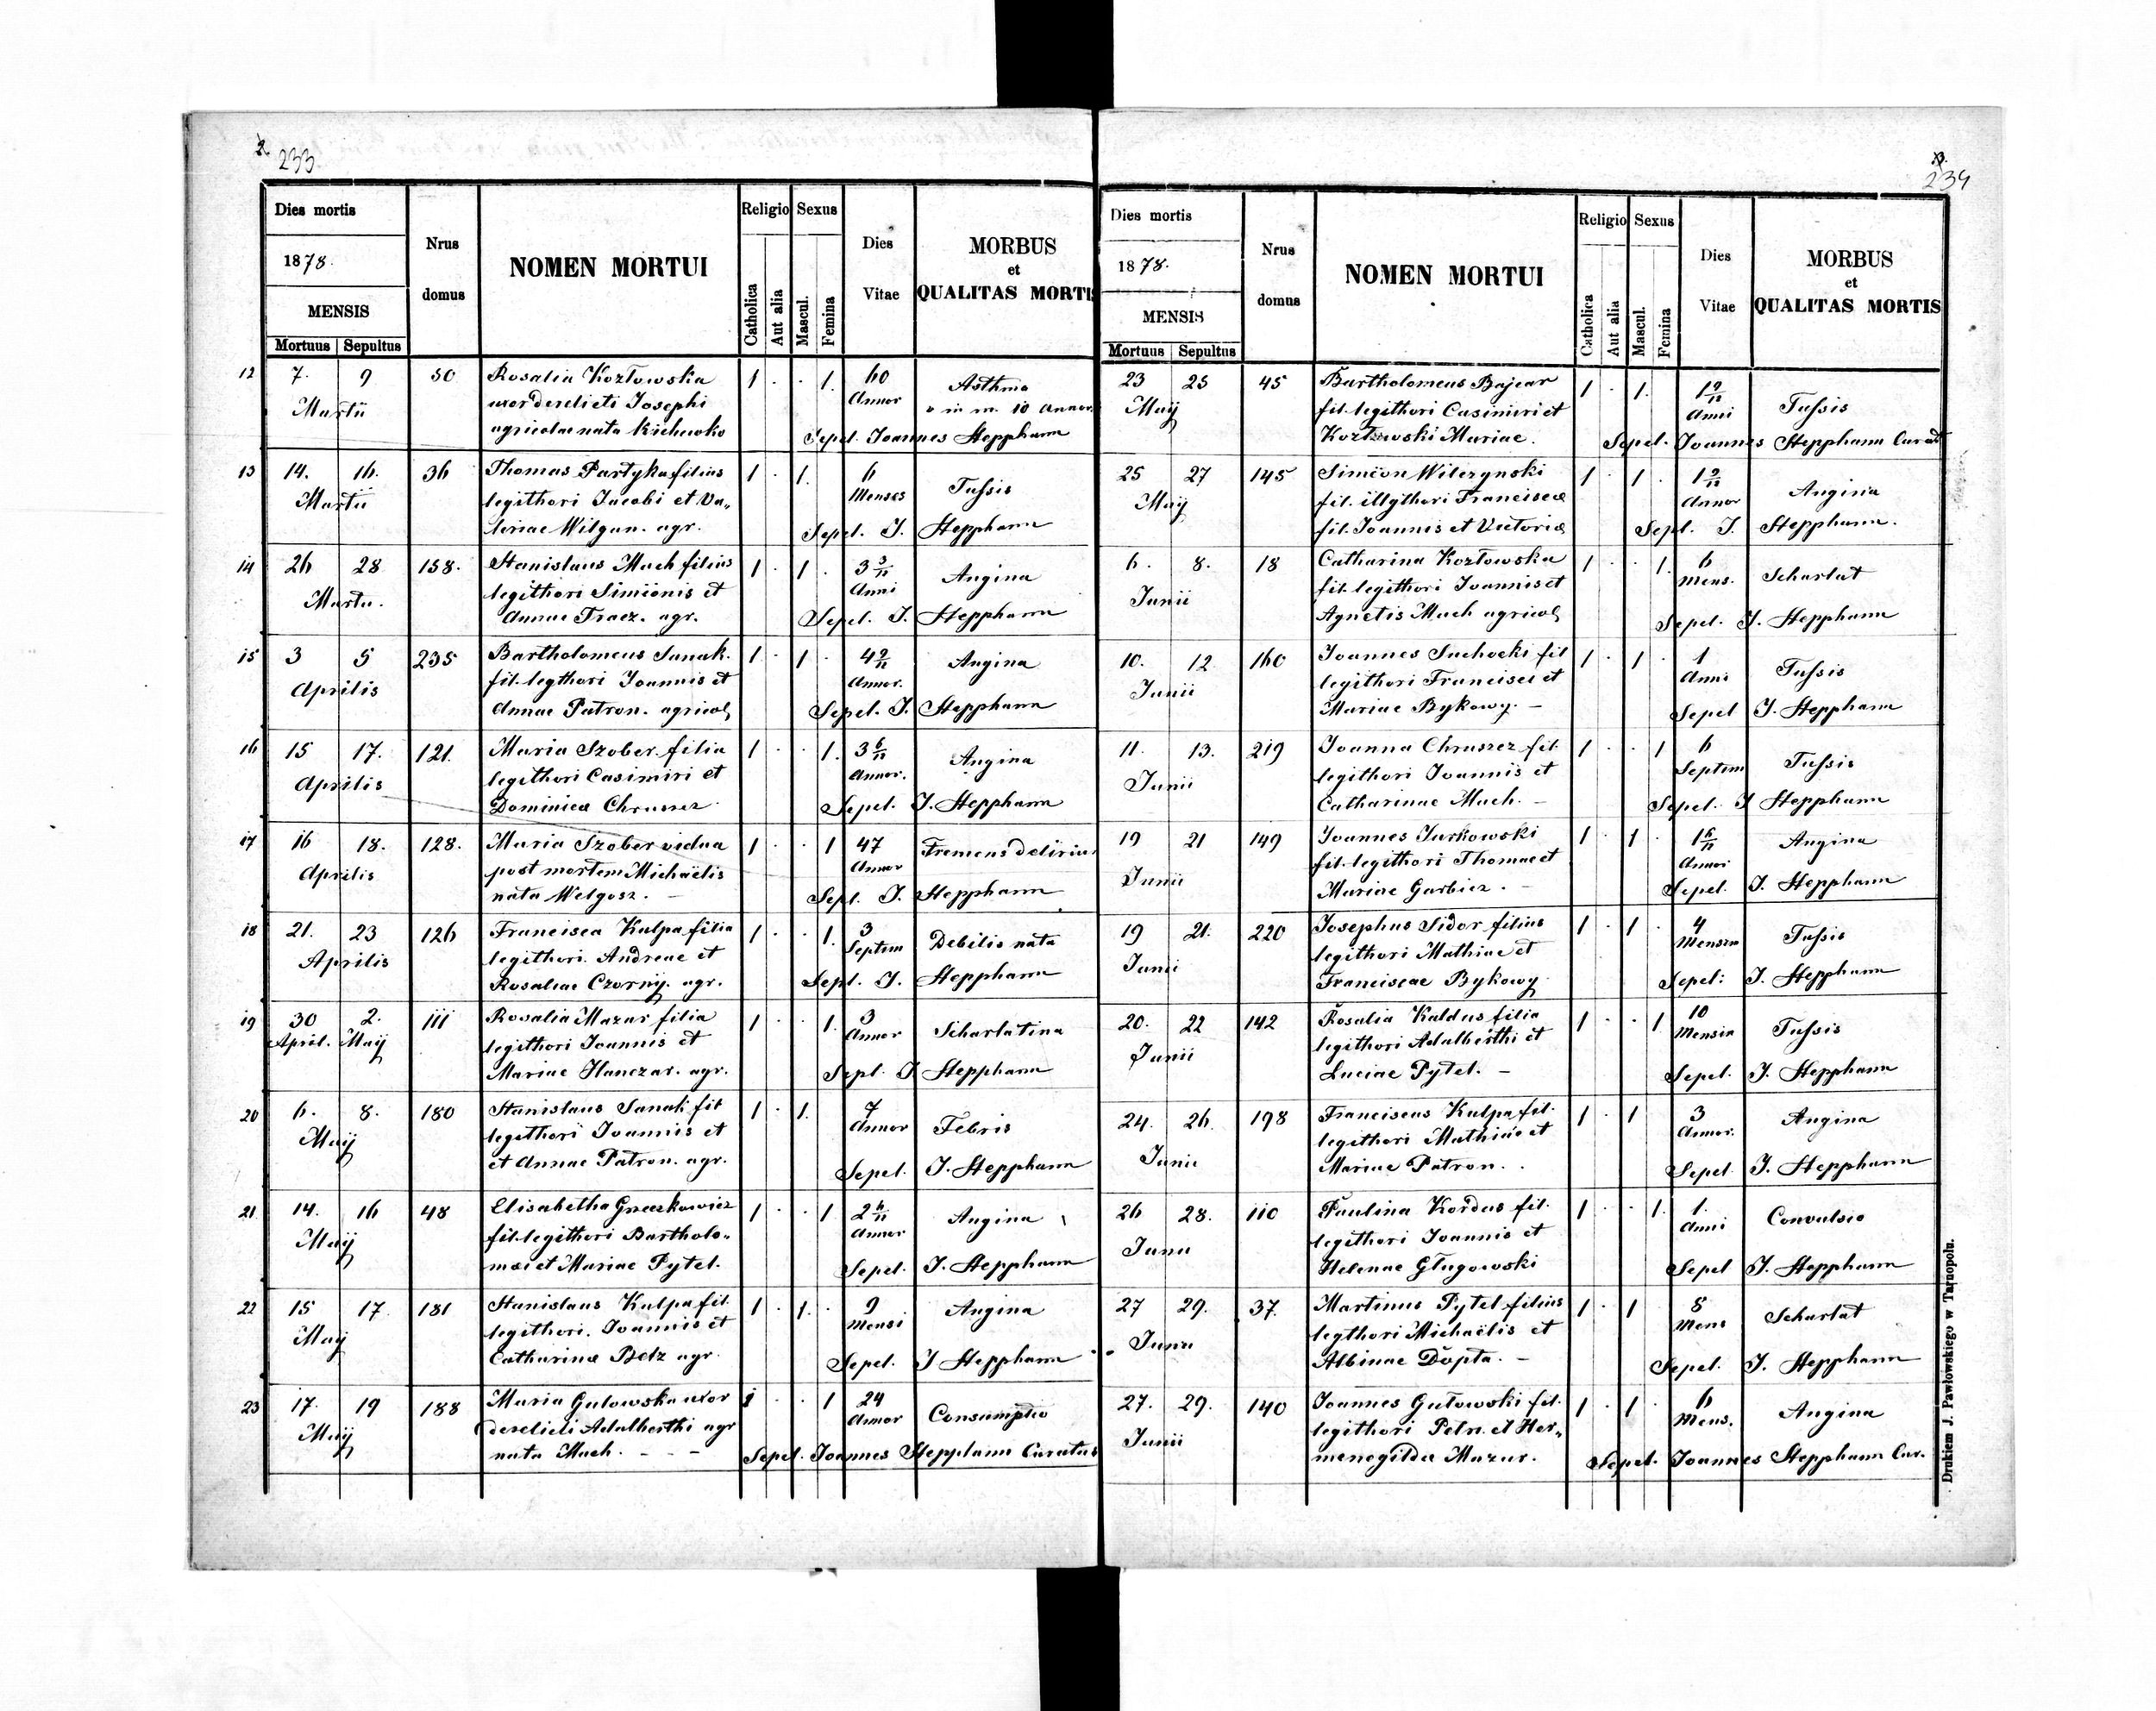 233
Dies mortis
1878.
MENSIS
Mortuus Sepultus
Nrus domus
NOMEN MORTUI
Religio
Catholica
Aut alia
Sexus
Mascul.
Femina
Dies Vitae
MORBUS
et
QUALITAS MORTI
12 7. 9 50 Rosalia Kozłowska 1 . . 1. 60 Asthma
Martii uxor derelicti Josephi Annor 10 Annor.
agricolae nata Sepel. Joannes Stepphann
13 14. 16. 36 Thomas Partyka filius 1 . 1. 6 Tussis
Martii legitthori Jacobi et Va„ Menses
leriae Wilgan. agr. Sepel. J. Stepphann
14 26 28 158. Stanislaus Mach filius 1 . 1 . 3 3/11 Angina
Martii. legitthori Simiönis et Anni
Annae Tracz. agr. Sepel. J. Stepphann
15 3 5 235 Bartholomeus Sanak. 1 . 1 . 4 9/11 Angina
Aprilis fil. legthori Joannis et Annor.
Annae Patron. agricol Sepel. J. Stepphann
16 15 17. 121. Maria Szober filia 1 . . 1. 3 6/11 Angina
Aprilis legitthori Casimiri et Annor.
Dominicæ Chruszcz Sepel. J. Stepphann
17 16 18. 128. Maria Szober vidua 1 . . 1 47 Fremens delirius
Aprilis post mortem Michaëlis Annor
nata Welgosz. – Sepl. J. Stepphann
18 21. 23 126 Francisca Kulpa filia 1 . . 1. 3 Debilis nata
Aprilis legithori. Andreae et Septim
Rosaliae Czornij. agr. Sepl. J. Stepphann
19 30 2. 111 Rosalia Mazur filia 1 . . 1. 3 Scharlatina
April. Maij legitthori Joannis et Annor
Mariae Hanczar. agr. Sepl. J. Stepphann
20 6. 8. 180 Stanislaus Sanak fil 1 . 1. 7 Febris
Maij legitthori Joannis et Annor
et Annae Patron. agr. Sepel. J. Stepphann
21. 14. 16 48 Elisabetha 1 . . 1 2 6/11 Angina
Maij fil. legitthori Bartholo„ Annor
mæi et Mariae Pytel. Sepel. J. Stepphann
22 15 17. 181 Stanislaus Kulpa fil. 1 . 1. . 9 Angina
Maij legitthori. Joannis et Mensi
Catharinæ Betz agr. Sepel. J Stepphann
23 17. 19 188 Maria Gutowska uxor 1 . . 1 24 Consumptio
Maij derelicti Adalberthi agr Annor
nata Mach. – – – Sepel. Joannes Stepphann Curatus
234
Dies mortis
1878.
MENSIS
Mortuus Sepultus
Nrus domus
NOMEN MORTUI
Religio
Catholica
Aut alia
Sexus
Mascul.
Femina
Dies Vitae
MORBUS
et
QUALITAS MORTIS
23 25 45 Bartholomeus Bajcar 1 . 1. 1 9/11 Tussis
Maij fil. legitthori Casimiri et Anni
Kozłowski Mariae. Sepel. Joannes Stepphann Curat
25 27 145 Simëon Wilczynski 1 . 1 . 1 2/11 Angina
Maij fil. illgthori Franciscæ Annor
fil. Joannis et Victoriæ Sepl. J. Stepphann.
6. 8. 18 Catharina Kozłowska 1 . . 1. 6 Scharlat
Junii fil. legitthori Joannis et Mens.
Agnetis Mach agricol Sepel. J. Stepphann
10. 12. 160 Joannes Suchocki fil 1 . 1 . 1 Tussis
Junii legitthori Francisci et Anni
Mariae Bykowy. – Sepel J. Stepphann
11. 13. 219 Joanna Chruszcz fil. 1 . . 1 6 Tussis
Junii legitthori Joannis et Septim
Catharinae Mach. – Sepel. J Stepphann
19 21 149 Joannes Jurkowski 1 . 1 . 1 6/11 Angina
Junii fil. legitthori Thomae et Annor
Mariae Garbicz. – Sepel. J. Stepphann
19 21. 220 Josephus Sidor filius 1 . 1 . 4 Tussis
Junii legitthori Mathiae et Mensin
Franciscae Bykowy Sepel: J. Stepphann
20. 22 142 Rosalia Kaldus filia 1 . . 1 10 Tussis
Junii legitthori Adalberthi et Mensin
Luciae Pytel. – Sepel. J. Stepphann
24. 26. 198 Franciscus Kulpa fil. 1 . 1 3 Angina
Junii legitthori Mathiae et Annor.
Mariae Patron. . Sepel. J. Stepphann
26 28. 110 Paulina Kordas fil. 1 . . 1. 1. Convulsio
Junii legitthori Joannis et Anni
Helenae Gługowski Sepel J. Stepphann
27 29. 37. Martinus Pytel filius 1 . 1 8 Scharlat
Junii legthori Michaëlis et Mens
Albinae Dopta. – Sepel. J. Stepphann
27. 29. 140 Joannes Gutowski fil. 1 . 1 . 6 Angina
Junii legitthori Petri et Her„ Mens.
menegildæ Mazur. Sepel. Joannes Stepphann Cur.
Drukiem J. Pawłowskiego w Tarnopolu.